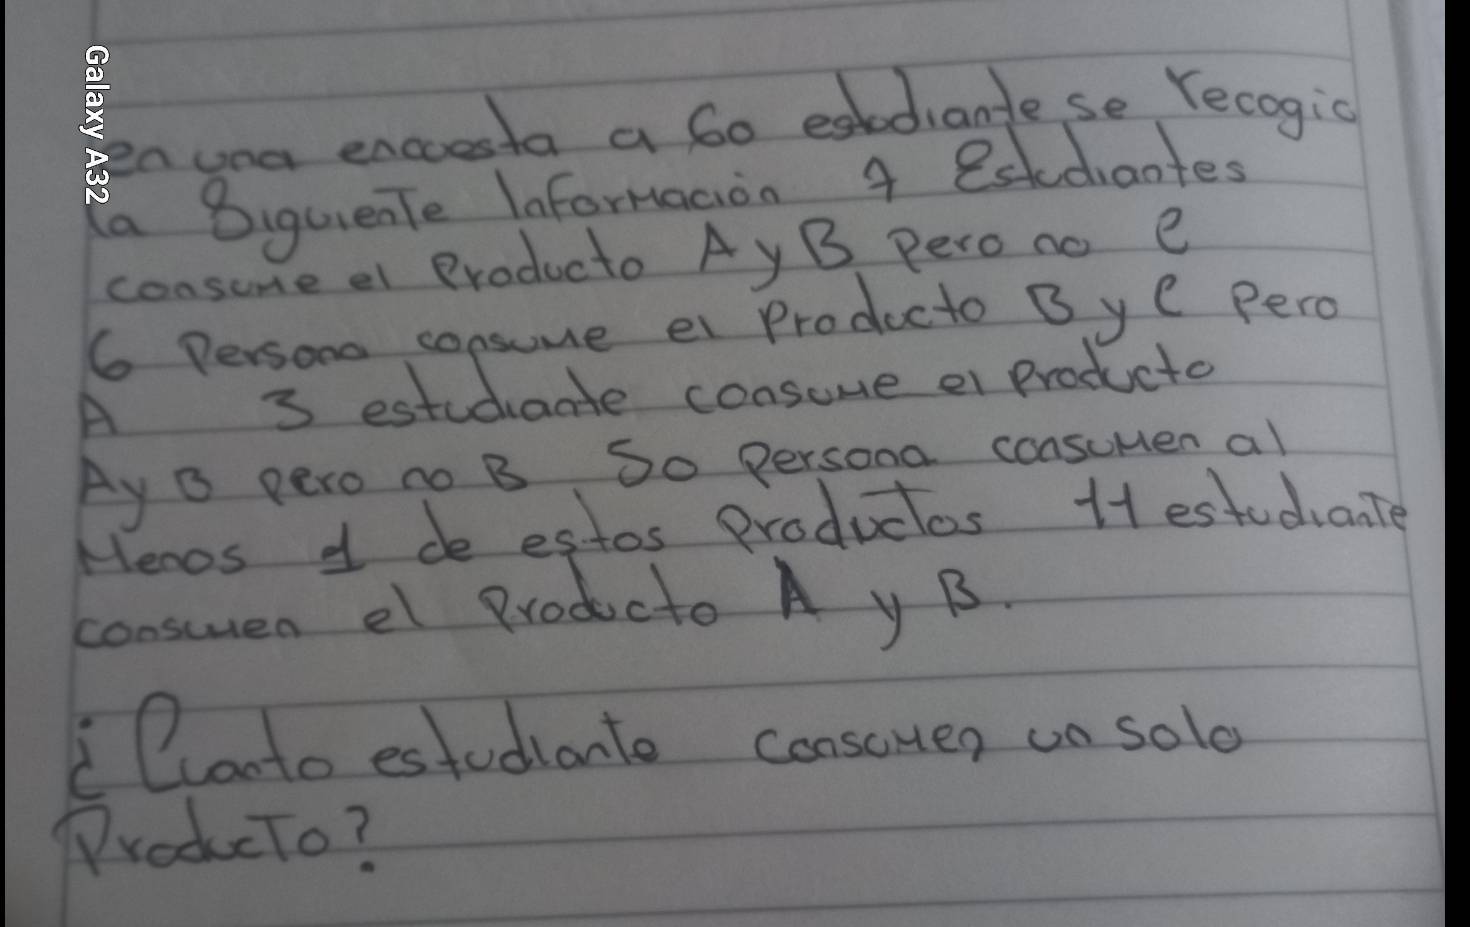 Galaxy A32
en una encuesta a 60 estudiante se recogio
la Siguiente Información 7 Estudiantes
consume el Producto A y B pero no C
6 Persona consume el Producto B y C Pero
A 3 estudiante consume el producto
A y B pero no B 50 Persona consumen al
Menos 1 de estos Productos 11 estudiante
consumen el Producto A y B.
¿Cuanto estudiante consumen un solo
Producto?